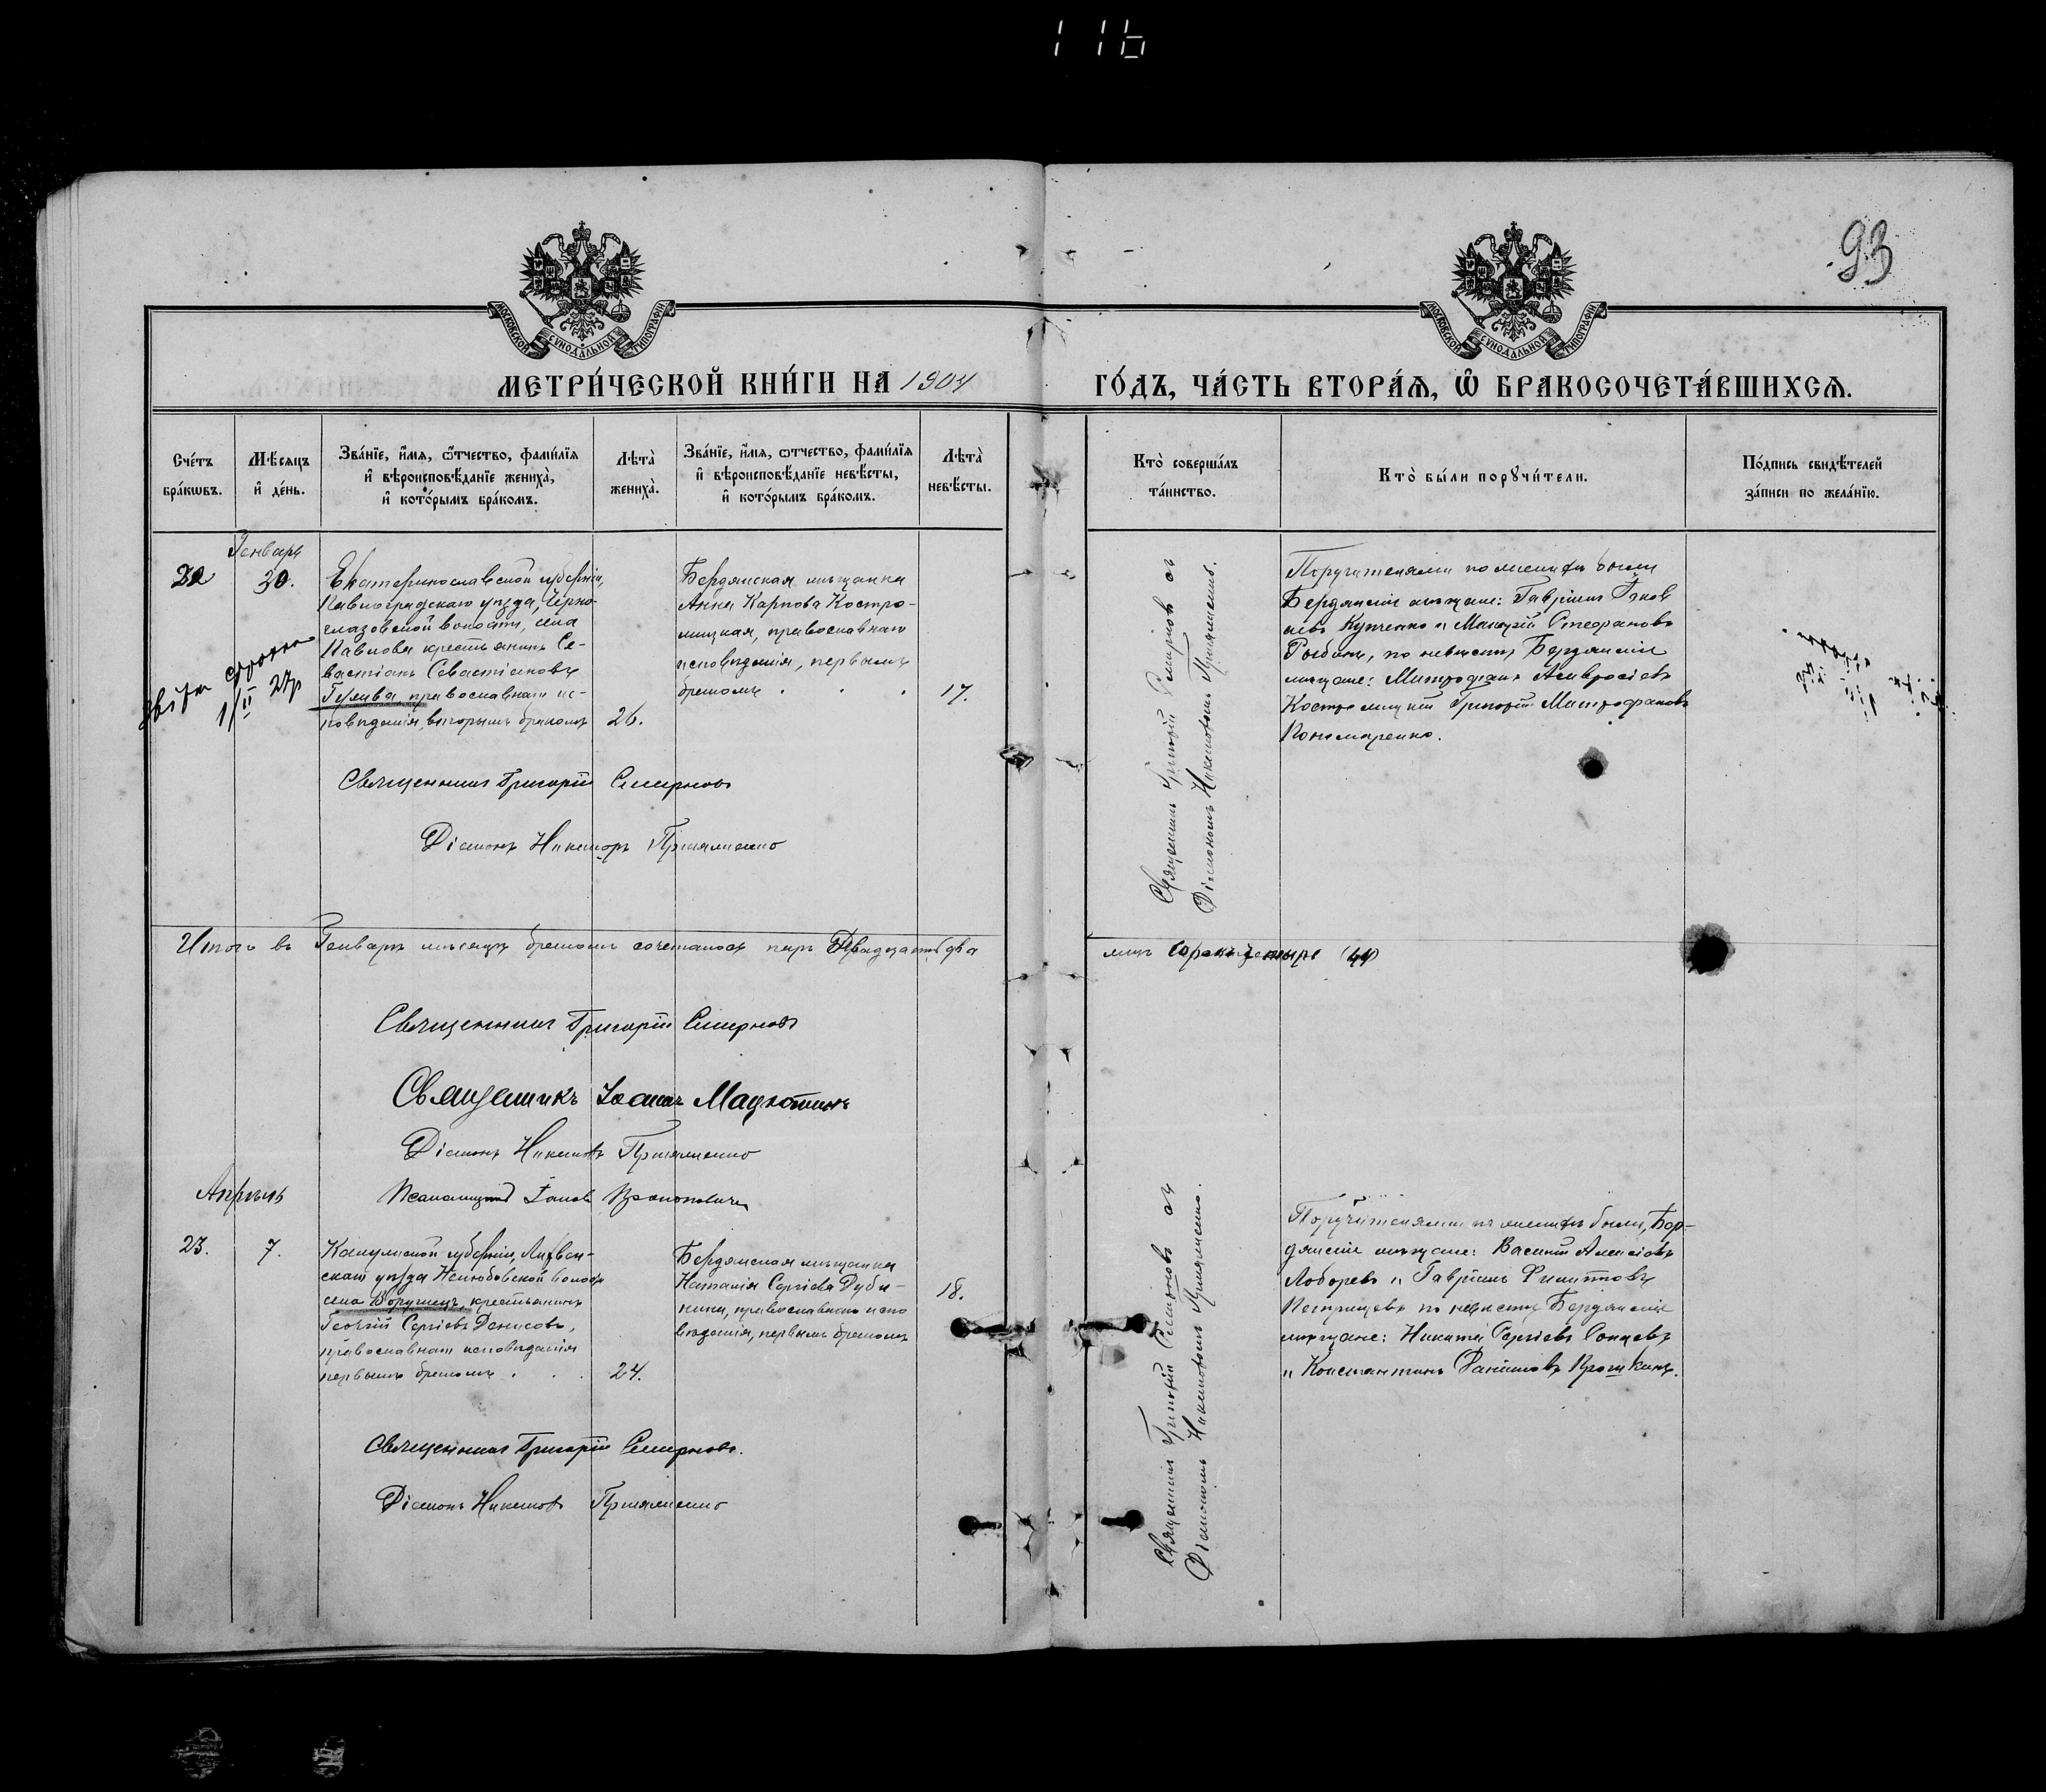 116
93
МОСКОВСКОЙ СѴНОДАЛЬНОЙ ТИПОГРАФІИ
МОСКОВСКОЙ СѴНОДАЛЬНОЙ ТИПОГРАФІИ
МЕТРИ́ЧЕСКОЙ КНИ́ГИ НА 1904
ГО́ДЪ, ЧА́СТЬ ВТОРА́Ѧ, Ѽ БРАКОСОЧЕТА́ВШИХСѦ.
Сче́тъ
бра́кѡвъ.
Мѣ́сяцъ
и҆ де́нь.
Зва́нїе, и҆́мя, ѻ҆́тчество, фами́лїя
и҆ вѣроисповѣ́данїе жениха̀,
и҆ кото́рымъ бра́комъ.
Лѣта̀
жениха̀.
Зва́нїе, и҆́мя, ѻтчество, фами́лїя
и҆ вѣроисповѣ́данїе невѣ́сты,
и҆ кото́рымъ бра́комъ.
Лѣта̀
невѣ́сты.
Кто̀ соверша́лъ
та́инство.
Кто̀ бы́ли порꙋчи́тели.
По́дпись свидѣ́телей
за́писи по жела́нїю.
Генварь
22
30.
Екатеринославской губерніи,
Павлоградскаго уѣзда, Черно-
глазовской волости, села
Павловки крестьянинъ Се-
вастіанъ Севастіановъ
православнаго ис-
повѣданія, вторымъ бракомъ
26.
Бердянская мѣщанка
Анна Карпова Костро-
мицкая, православнаго
исповѣданія, первымъ
бракомъ . . .
17.
Священникъ Григорій Смирновъ съ
Діакономъ Никитою
Поручителями по женихѣ были
Бердянскіе мѣщане: Гавріилъ Яков
левъ Купченко и Стефановъ
Рыбинъ, по невѣстѣ Бердянскіе
мѣщане: Митрофанъ Амвросіевъ
Костромицкій Григорій Митрофановъ
Пономаренко.
Священникъ Григорій Смирновъ
Діаконъ
Итого въ Генварѣ мѣсяцѣ бракомъ сочеталось паръ Двадцать два
лицъ Сорокъ четыре (44)
Священникъ Григорій Смирновъ
Священникъ Іоаннъ
Діаконъ
Псаломщикъ
Апрѣль
23.
7.
Калужской губерніи, Лихвин-
скаго уѣзда волости
села крестьянинъ
Георгій Сергіевъ Денисовъ,
православнаго исповѣданія
первымъ бракомъ . . .
24.
Бердянская мѣщанка
Наталія Сергіева Дуби-
нина, православнаго испо
вѣданія, первымъ бракомъ
18.
Священникъ Григорій Смирновъ съ
Діакономъ
Поручителями по женихѣ были, Бер-
дянскіе мѣщане: Василій Алексіевъ
Лоборевъ и Гавріилъ Филипповъ
по невѣстѣ Бердянскіе
мѣщане: Никита Сергіевъ
и Константинъ Даниловъ
Священникъ Григорій Смирновъ.
Діаконъ